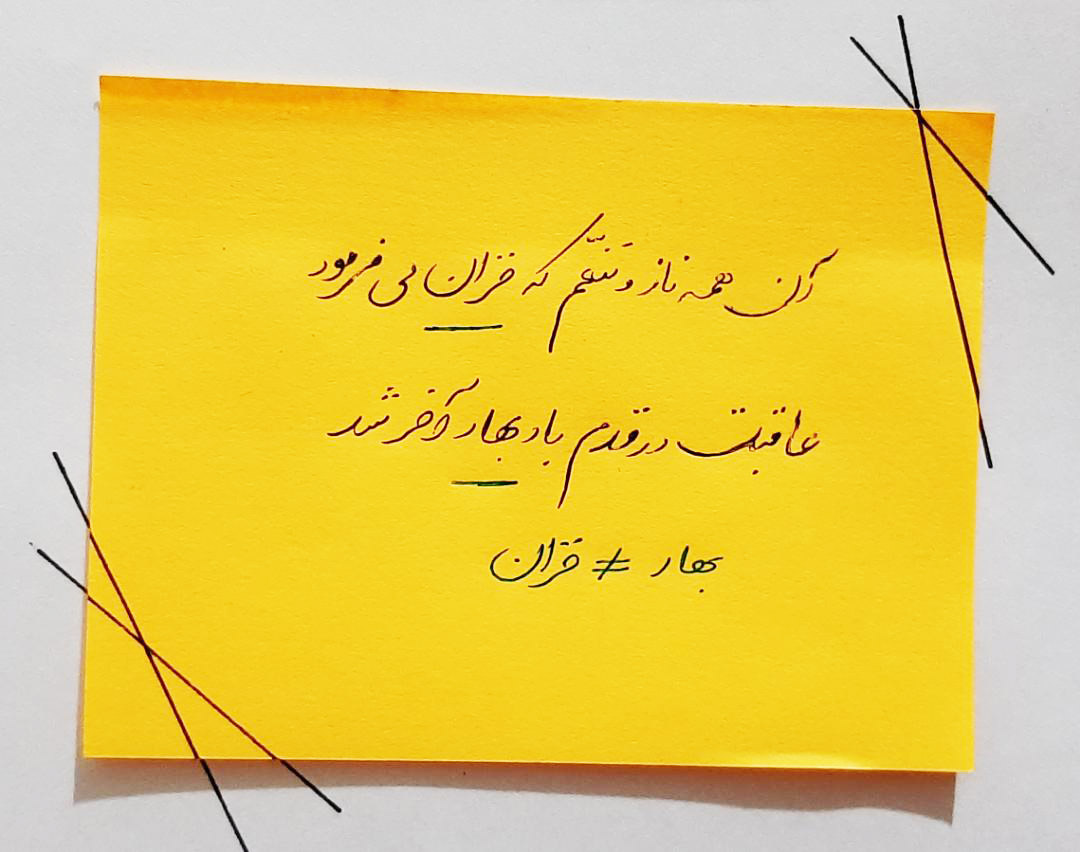 آن همه ناز و تنعّم که خزان می فرمود
عاقبت در قدم باد بهار آخر شد
بهار ≠ خزان